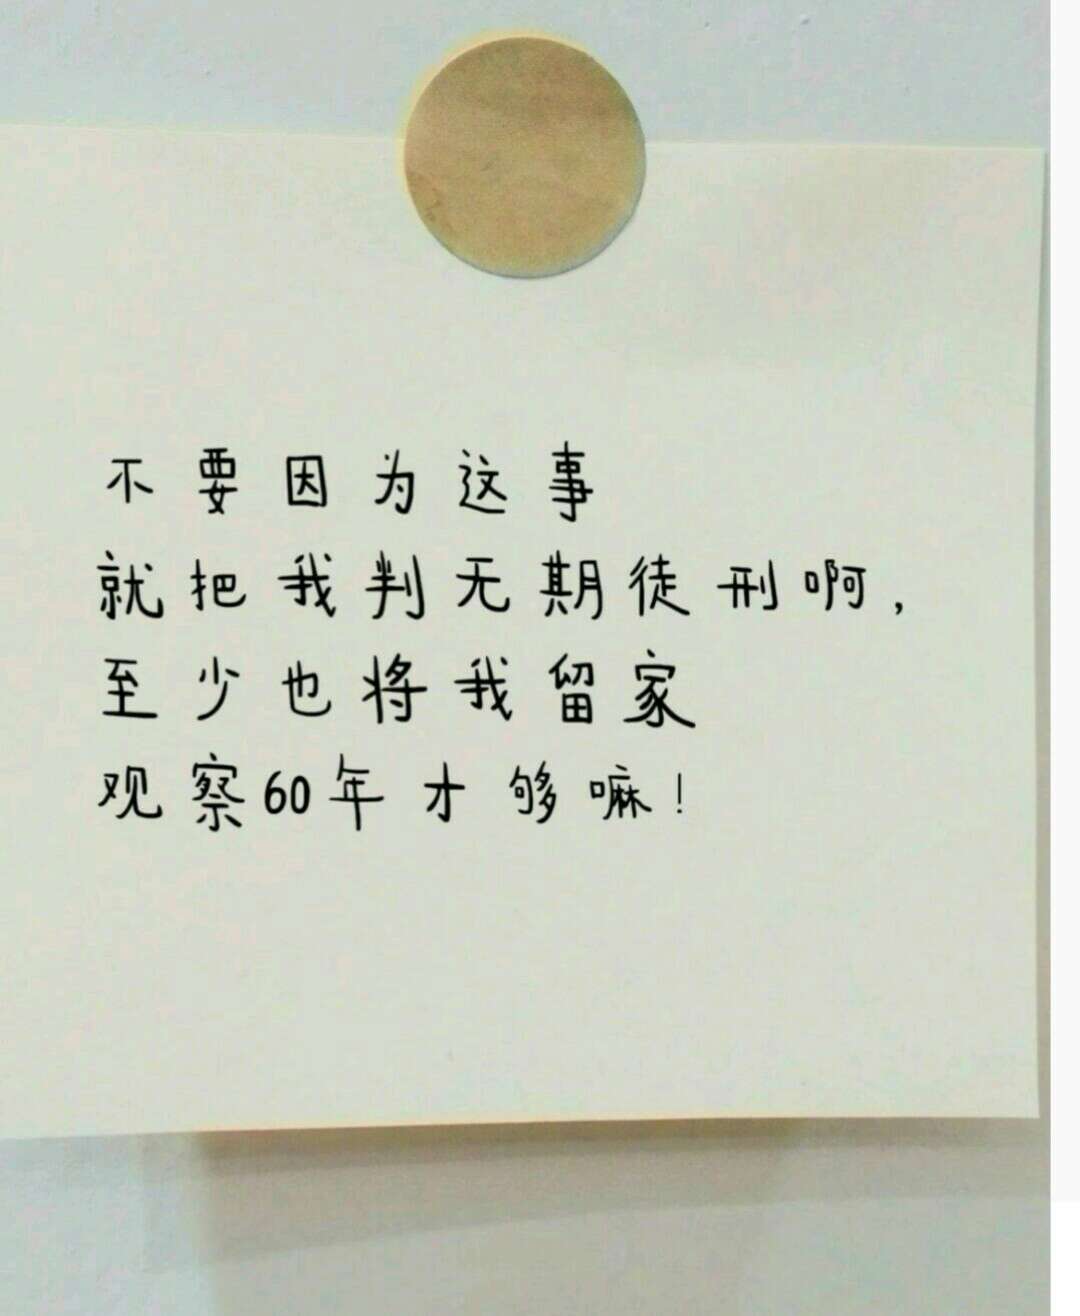 不要因为这事
就把我判无期徒刑啊，
至少也将我留家
观察60年才够嘛！